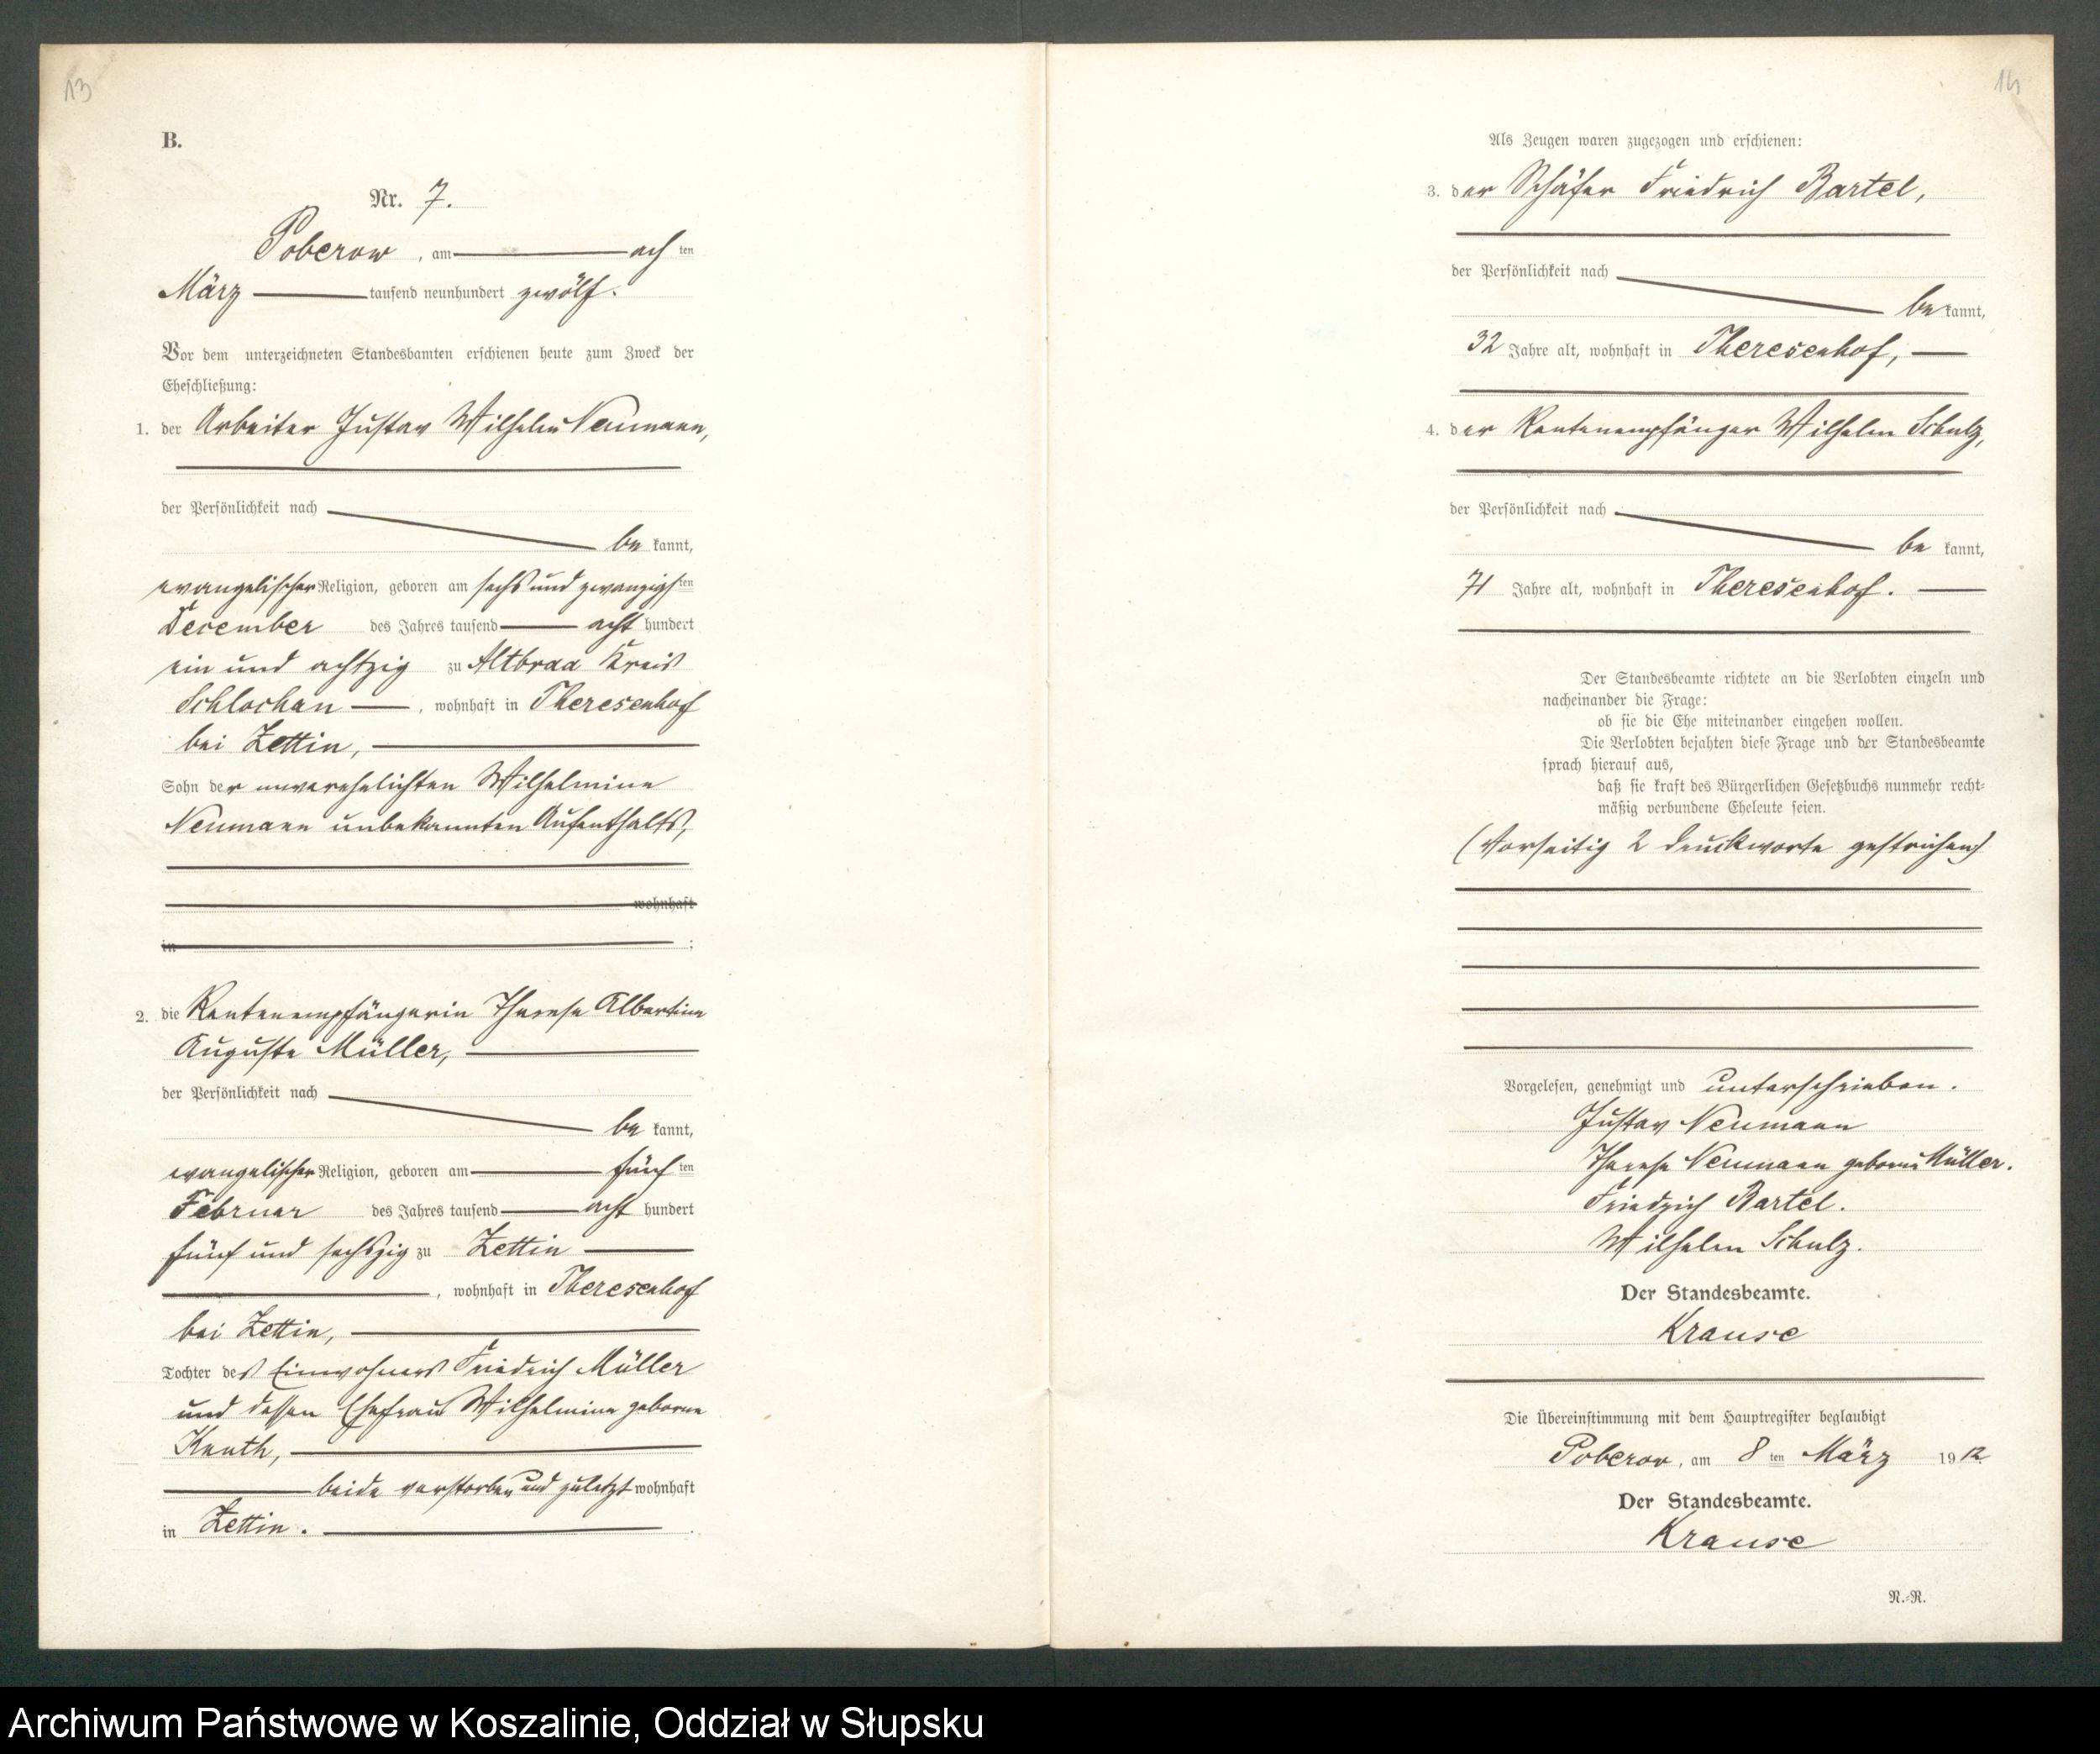 13
B.
Nr. 7.
Poberow, am ach ten
März tausend neunhundert zwölf.
Vor dem unterzeichneten Standesbamten erschienen heute zum Zweck der
Eheschließung:
1. der Arbeiter Gustav Wilhelm Neumann,
der Persönlichkeit nach
be kannt,
evangelischer Religion, geboren am sechs und zwanzigs ten
Dezember des Jahres tausend acht hundert
ein und achtzig zu Altbraa Kreis
Schlochau, wohnhaft in Theresenhof
bei Zettin,
Sohn der unverehelichten Wilhelmine
Neumann unbekannten Aufenthalts,
wohnhaft
in ;
2. die Rentenempfängerin Therese Albertine
Auguste Müller,
der Persönlichkeit nach
be kannt,
evangelischer Religion, geboren am fünf ten
Februar des Jahres tausend acht hundert
fünf und sechszig zu Zettin
, wohnhaft in Theresenhof
bei Zettin,
Tochter des Einwohners Friedrich Müller
und dessen Ehefrau Wilhelmine geborne
Knuth,
beide verstorben und zuletzt wohnhaft
in Zettin.
14
Als Zeugen waren zugezogen und erschienen:
3. der Schäfer Friedrich Bartel,
der Persönlichkeit nach
be kannt,
32 Jahre alt, wohnhaft in Theresenhof,
4. der Rentenempfänger Wilhelm Schulz,
der Persönlichkeit nach
be kannt,
71 Jahre alt, wohnhaft in Theresenhof.
Der Standesbeamte richtete an die Verlobten einzeln und
nacheinander die Frage:
ob sie die Ehe miteinander eingehen wollen.
Die Verlobten bejahten diese Frage und der Standesbeamte
sprach hierauf aus,
daß sie kraft des Bürgerlichen Gesetzbuchs nunmehr recht-
mäßig verbundene Eheleute seien.
(Vorseitig 2 Druckworte gestrichen)
Vorgelesen, genehmigt und unterschrieben.
Gustav Neumann
Therese Neumann geborne Müller.
Friedrich Bartel.
Wilhelm Schulz.
Der Standesbeamte.
Krause
Die Übereinstimmung mit dem Hauptregister beglaubigt
Poberow, am 8 ten März 1912.
Der Standesbeamte.
Krause
N.-R.
Archiwum Państwowe w Koszalinie, Oddział w Słupsku